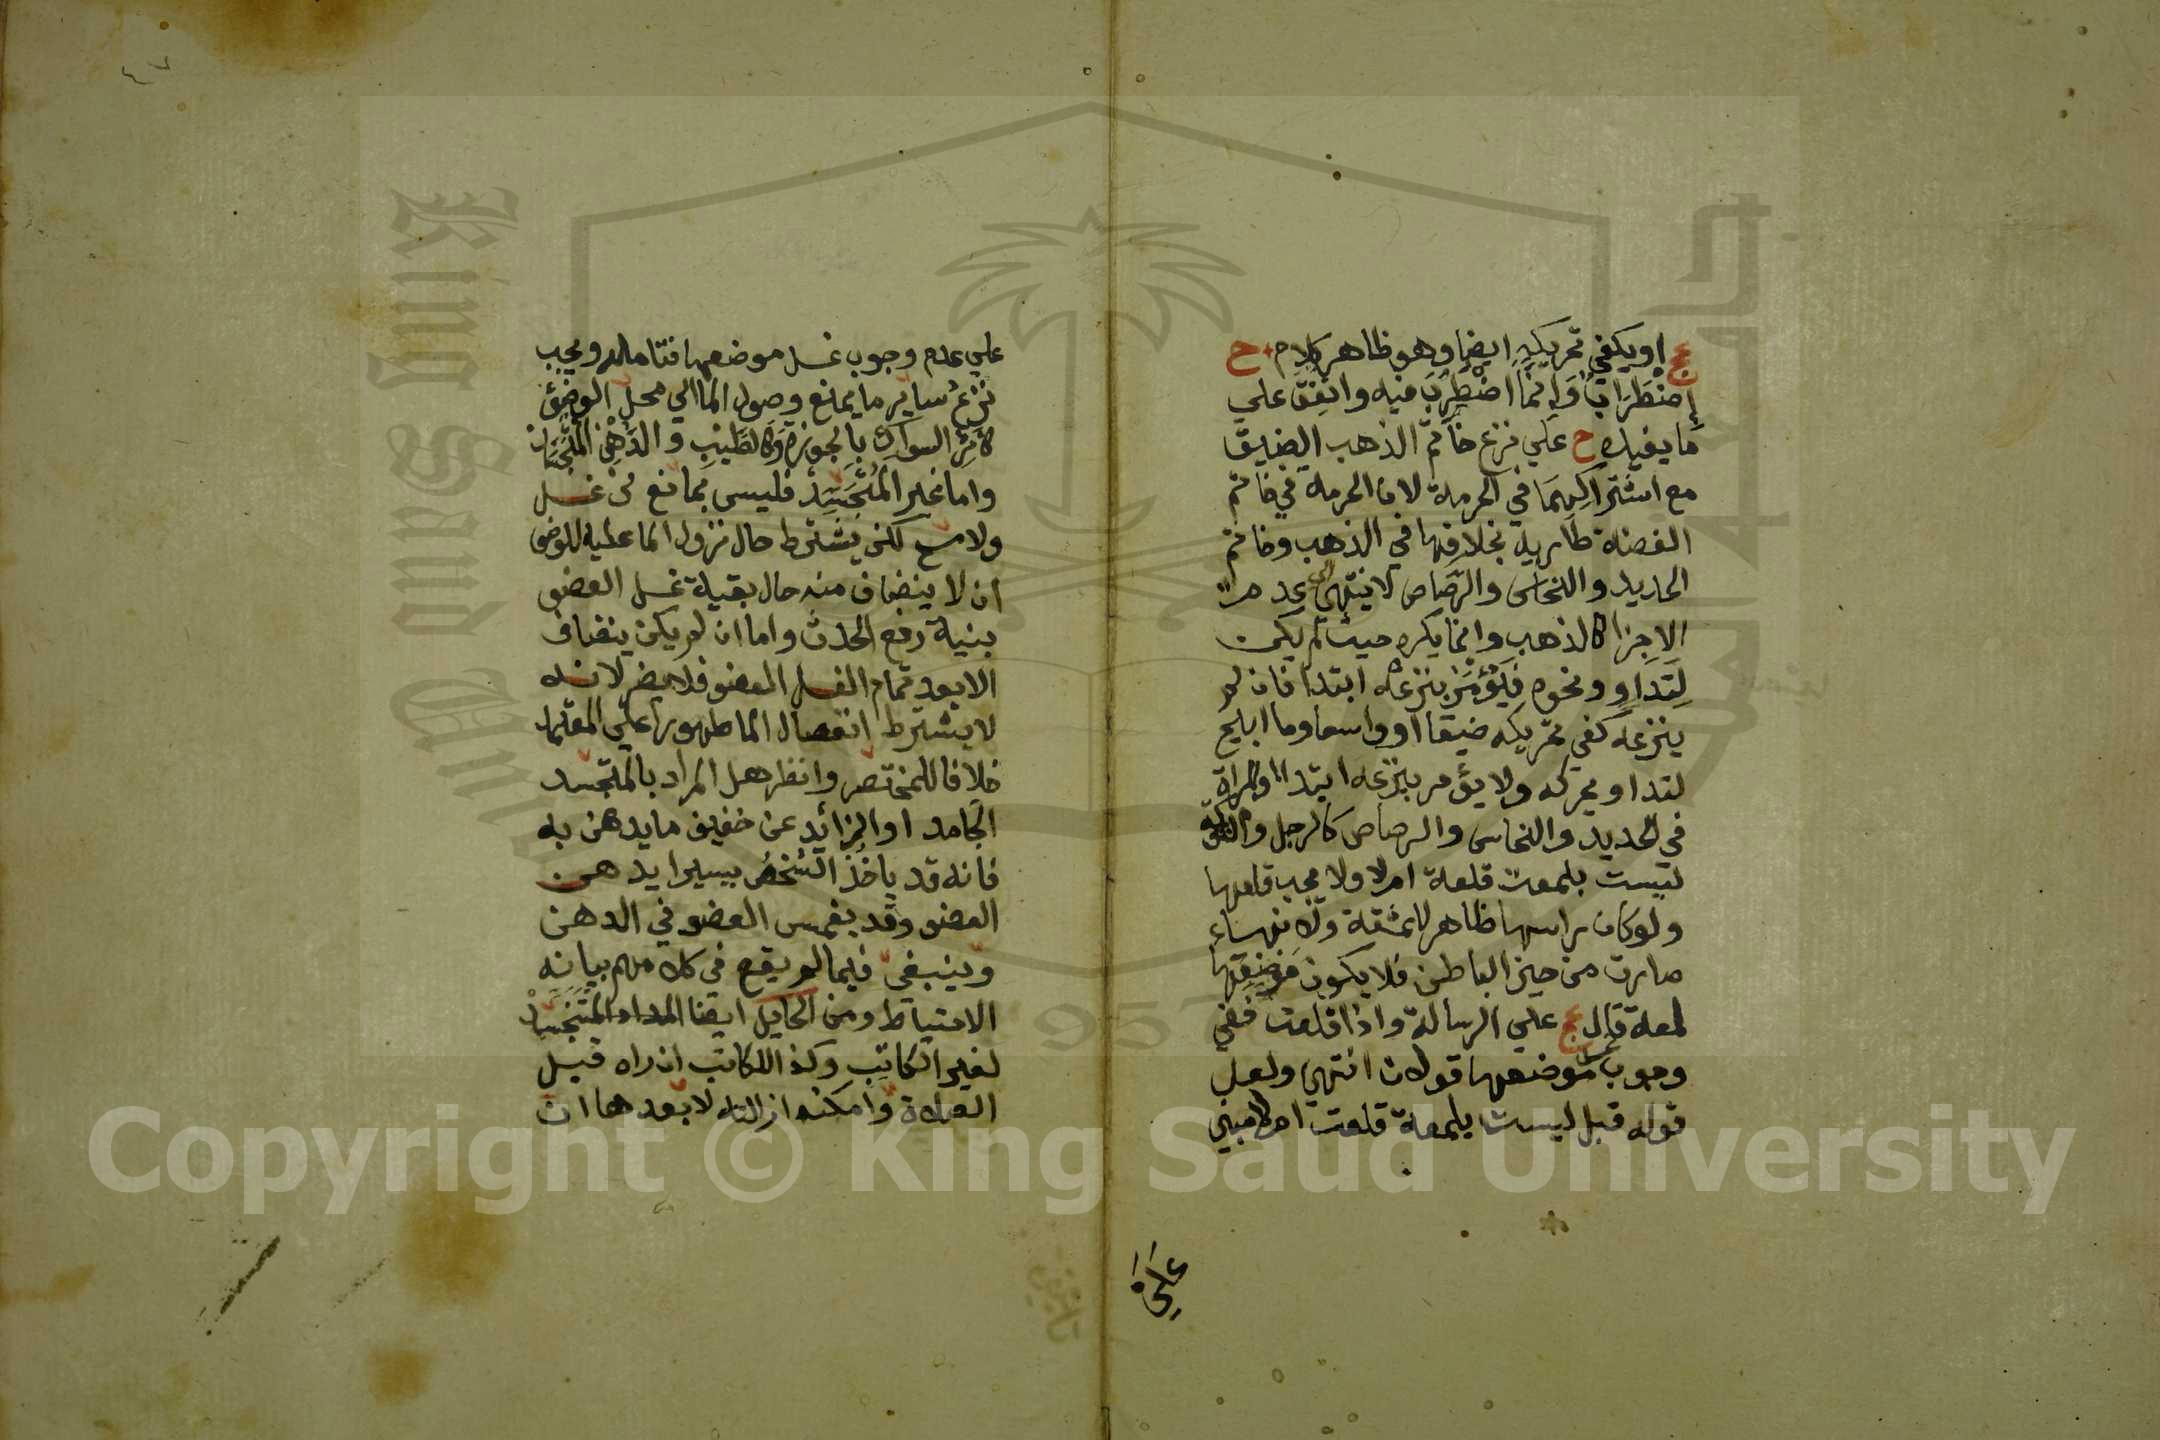 او يكفي تحريكه ايضا وهو ظاهر كلام ح
عج
إضطراب وانما اضطرب فيه واتفق علي
ما يفيده ح علي نزع خاتم الذهب الضيق
مع اشتراكهما في الحرمة لان الحرمة في خاتم
الفضة طارية بخلافها في الذهب وخاتم
الحديد والنحاس والرصاص لا ينتهي الي عدم
الاجزا كالذهب وانما يكره حيث لم يكن
لتداو ونحوه فيؤمر بنزعه ابتدا فان لم
ينزعه كفي تحريكه ضيقا او واسعا وما ابيح
لتداو يحركه ولا يؤمر بنزعه ابتدا والمراة
في الحديد والنحاس والرصاص كالرجل والشوكة
ليست بلمعة قلعة ام لا ولا يجب قلعها
ولو كان راسها ظاهر للمشقة ولانها
صارت من حيز الباطن فلا يكون موضعها
لمعة قال عج علي الرسالة واذا قلعت ففي
وجوب غسل موضعها قولان انتهي ولعل
قوله قبل ليست بلمعة قلعت ام لا مبني
علي
علي عدم وجوب غسل موضعها فتامله ويجب
نزع ساير ما يمنع وصول الما الي محل الوضؤ
كاثر السواك بالجوزة وكالطيب والدهن المتجسدان
واما غير المتجسد فليس بمانع في غسل
ولا مسح لكن يشترط حال نزول الما عليه للوضؤ
ان لا ينضاف منه حال بقية غسل العضو
بنية رفع الحدث واما ان لم يكن ينضاف
الا بعد تمام الغسل للعضو فلا يضر لانه
لا يشترط انفصال الما طهورا علي المعتمد
خلافا للمختصر وانظر هل المراد بالمتجسد
الجامد او الزائد عن خفيف ما يدهن به
فانه قد ياخذ الشخص يسيرا يدهن
العضو وقد يغمس العضو في الدهن
وينبغي فيما لم يقع في كلامهم بيانه
الاحتياط ومن الحايل ايضا المداد المتجسد
لغير الكاتب وكذا للكاتب ان راه قبل
الصلاة وامكنه ازالته لا بعدها ان
Copyright © King Saud University
King Saud University
1957